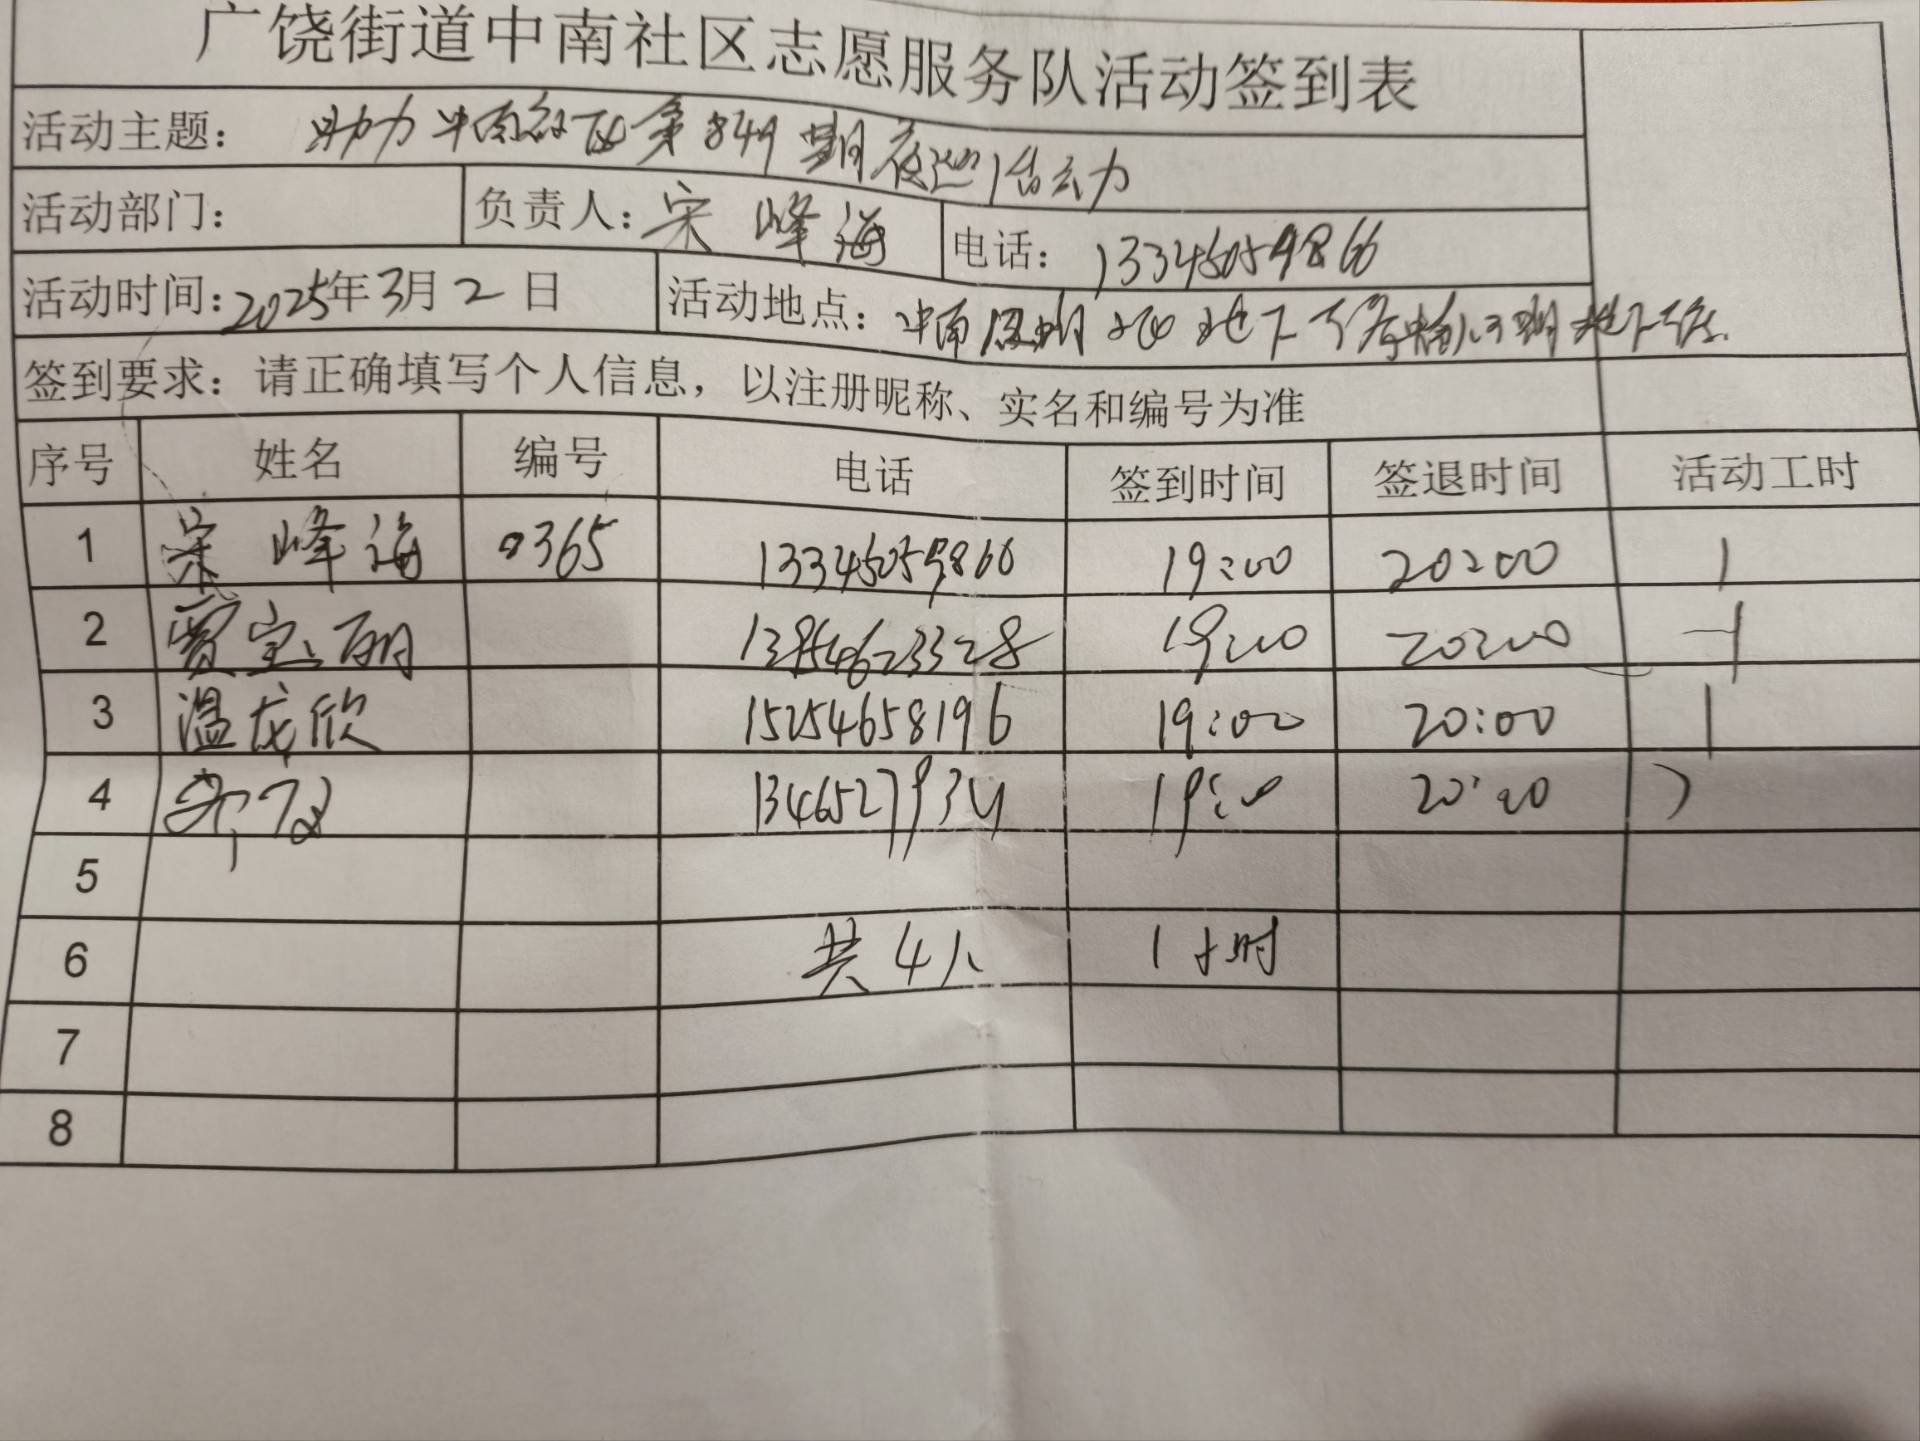 广饶街道中南社区志愿服务队活动签到表
活动主题：助力中南 第849期夜巡活动
活动部门： 负责人：宋峰海 电话：13345059866
活动时间：2025年3月2日 活动地点：中南 地下
签到要求：请正确填写个人信息，以注册昵称、实名和编号为准
序号 姓名 编号 电话 签到时间 签退时间 活动工时
1 宋峰海 0365 13345059866 19:00 20:00 1
2 贾宝丽 13854623328 19:00 20:00 1
3 温龙欣 15254658196 19:00 20:00 1
4 19:00 20:00
5
6 共4人 1小时
7
8